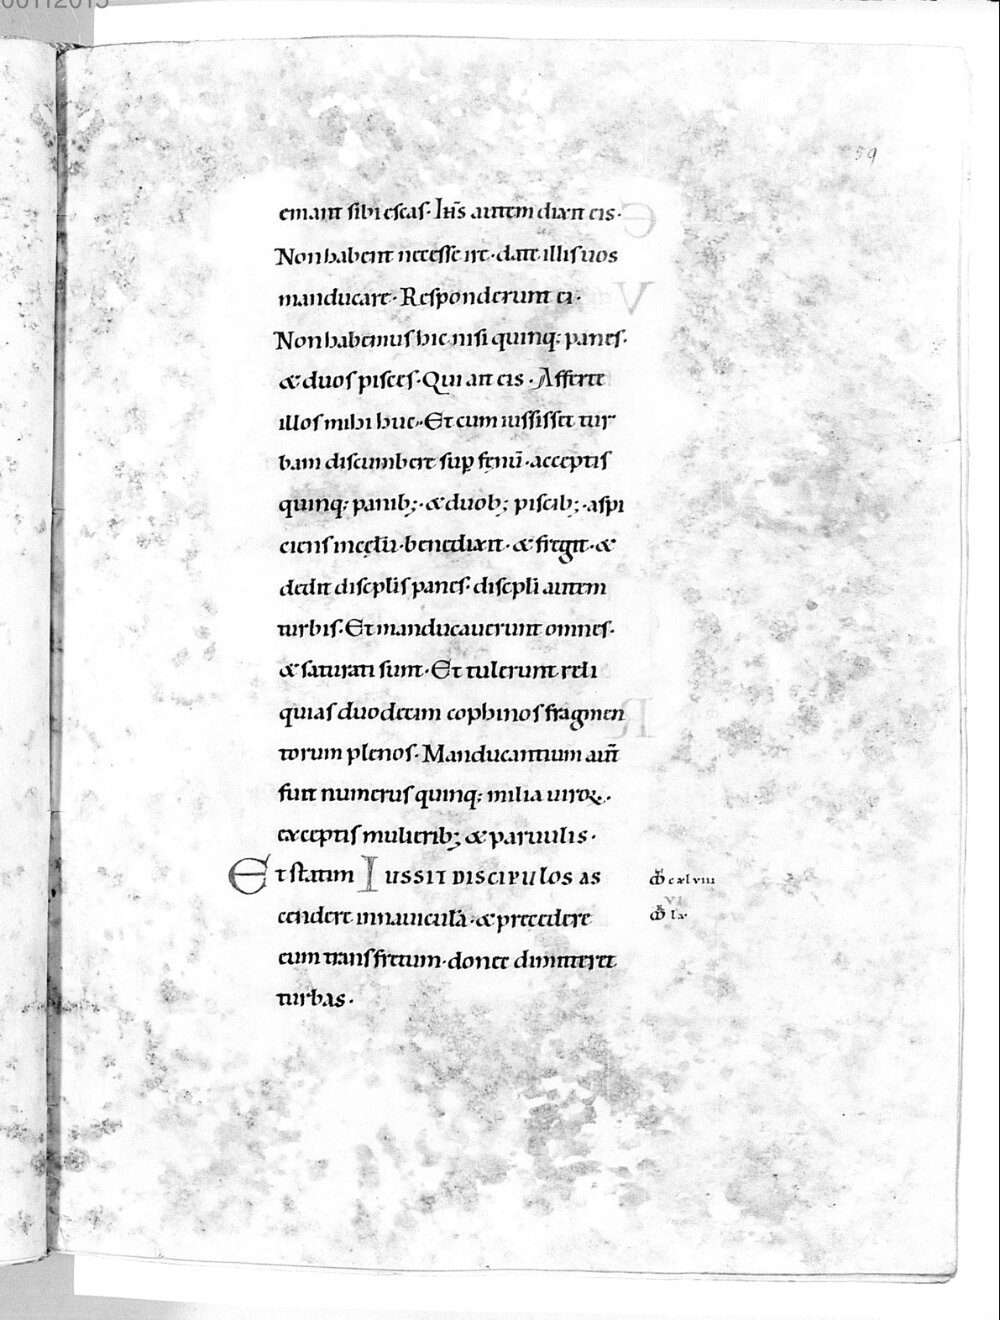 59
emant sibi escas· Ihs̄ autem dixit eis·
Non habent necesse ire· date illis uos
manducare· Responderunt ei·
Non habemus hic nisi quinq; panes·
& duos pisces· Qui ait eis· Afferte
illos mihi huc· Et cum iussisset tur
bam discumbere sup̱ fęnū· acceptis
quinq; panib;· & duob; piscib;· aspi
ciens in cęlū· benedixit· & fregit· &
dedit discplīs panes· discpli autem
turbis· Et manducauerunt omnes·
& saturati sunt· Et tulerunt reli
quias duodecim cophinos fragmen
torum plenos· Manducantium aut̄
fuit numerus quinq; milia uiroꝝ·
exceptis mulierib; & paruulis·
Et statim IUSSIT DISCIPULOS AS
cendere in nauiculā· & precedere
eum trans fretum· donec dimitteret
turbas·
cxlviii
lx